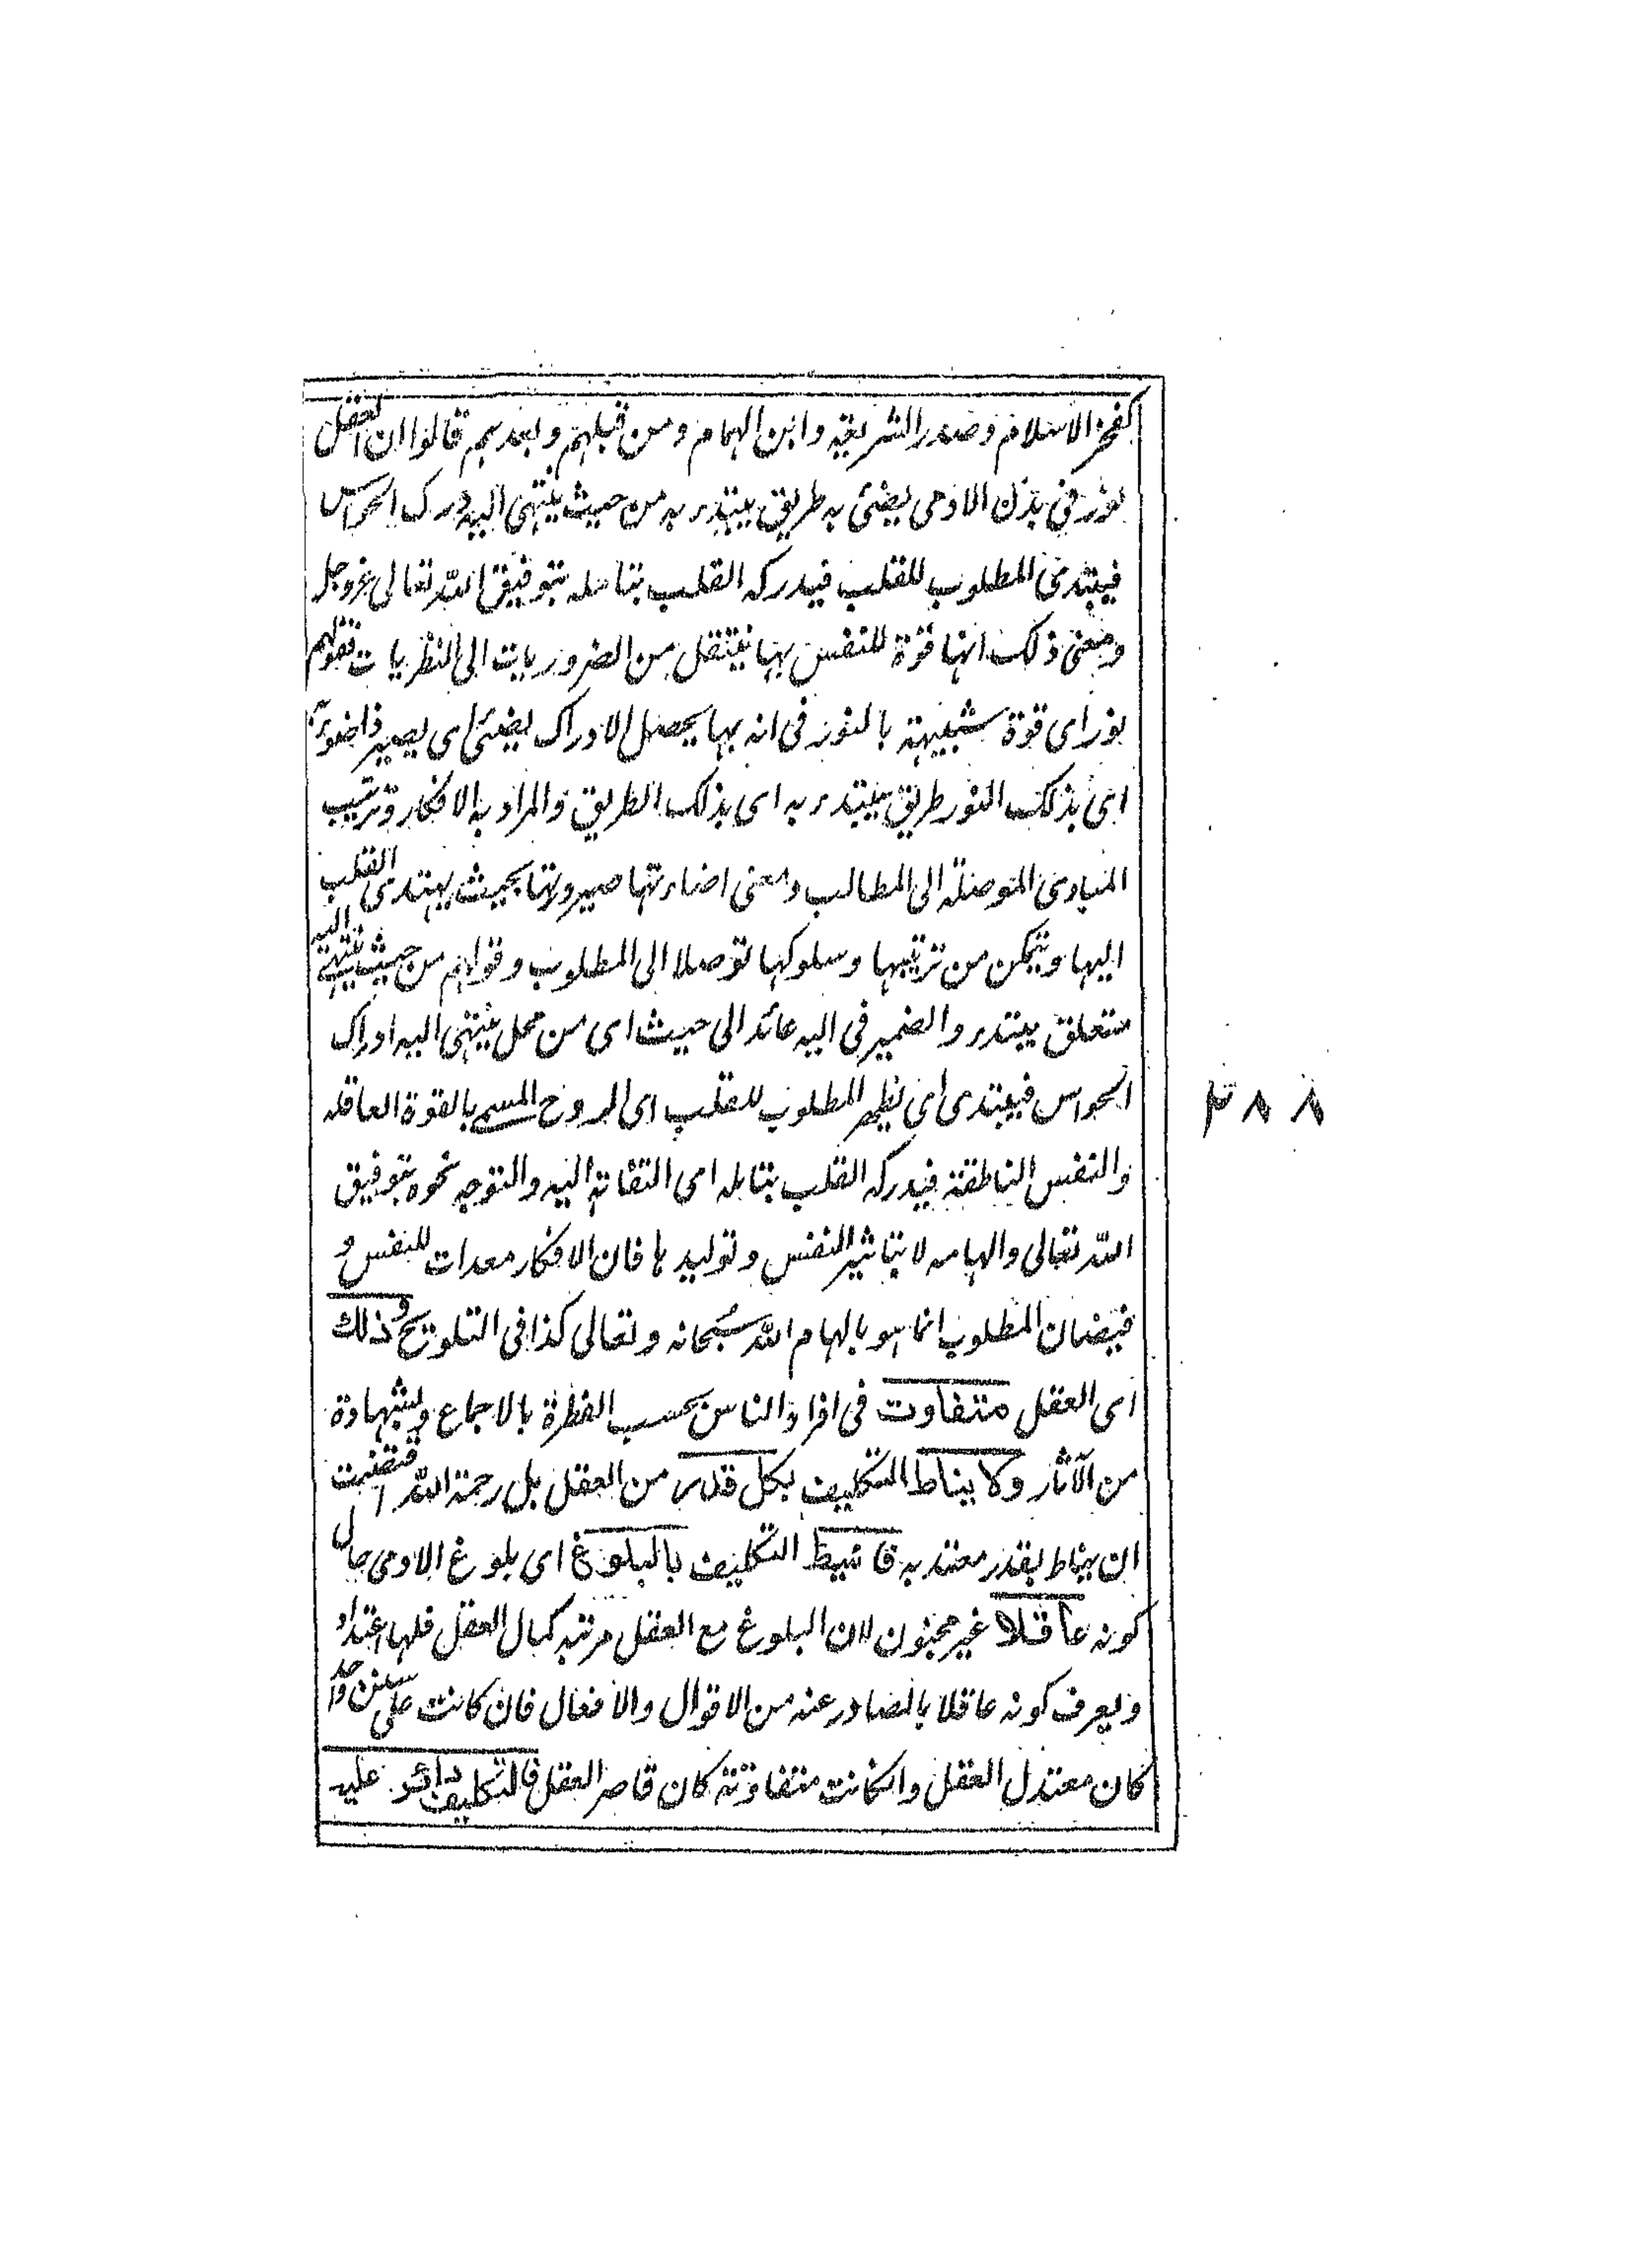 كفخر الاسلام وصدر الشريعة وابن الهمام ومن قبلهم وبعدهم قالوا ان العقل
نور فى بدن الادمى يضئ به طريق يبتدء به من حيث ينتهى اليه درك الحواس
فيبتدى المطلوب للقلب فيدركه القلب بتامله بتوفيق الله تعالى عزوجل
ومعنى ذلك انها قوة للنفس بها ينتقل من الضروريات الى النظريات فقولهم
نور اى قوة شبيهة بالنور فى انه بها يحصل الادراك يضئ اى يصير ذا ضوء به
اى بذلك النور طريق يبتدء به اى بذلك الطريق والمراد به الافكار وترتيب
المبادى الموصلة الى المطالب ومعنى اضاءتها صيرورتها بحيث يهتدى القلب
اليها ويتمكن من ترتيبها وسلوكها توصلا الى المطلوب وقولهم من حيث ينتهى اليه
متعلق يبتدء والضمير فى اليه عائد الى حيث اى من محل ينتهى اليه ادراك
الحواس فيبتدى اى يظهر المطلوب للقلب اى الروح المسمى بالقوة العاقلة
والنفس الناطقة فيدركه القلب بتامله اى التفاته اليه والتوجه نحوه بتوفيق
الله تعالى والهامه لا بتاثير النفس وتوليدها فان الافكار معدات للنفس و
فيضان المطلوب انما هو بالهام الله سبحانه وتعالى كذا فى التلويح وذلك
اى العقل متفاوت فى افراد الناس بحسب الفطرة بالاجماع ولشهادة
من الآثار ولا يناط التكليف بكل قدر من العقل بل رحمة الله اقتضت
ان يناط بقدر معتد به فانيط التكليف بالبلوغ اى بلوغ الادمى حال
كونه عاقلا غير مجنون لان البلوغ مع العقل مرتبه كمال العقل فلها اعتداد
ويعرف كونه عاقلا بالصادر عنه من الاقوال والافعال فان كانت على سنن واحد
كان معتدل العقل وانكانت متفاوتة كان قاصر العقل فالتكليف دائر عليه
٣٨٨